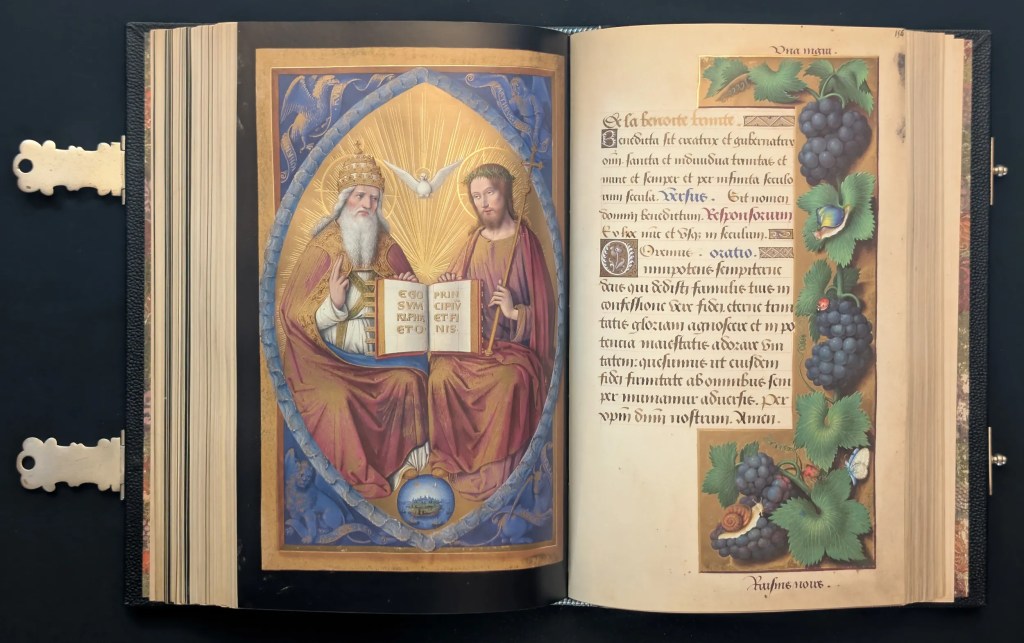 EGO
SVM
ALPHA
ET O
PRIN
CIPIŪ
ET FI
NIS.
Vua nigui.
De la benoite trinite.
Benedicta sit creatrix et gubernatrix
omi. sancta et indiuidua trinitas et
nunc et semper et per infinita seculo
rum secula. Versus. Sit nomen
domini benedictum. Responsorium
Ex hoc nūc et vsq; in seculum.
Oremus. oratio.
Omnipotens sempiterne
deus qui dedisti famulis tuis in
confessione vere fidei eterne trini
tatis gloriam agnoscere et in po
tencia maiestatis adorare vni
tatem: quesumus ut eiusdem
fidei firmitate ab omnibus sem
per muniamur aduersis. Per
xpm dnm nostrum. Amen.
Raisins noirs.